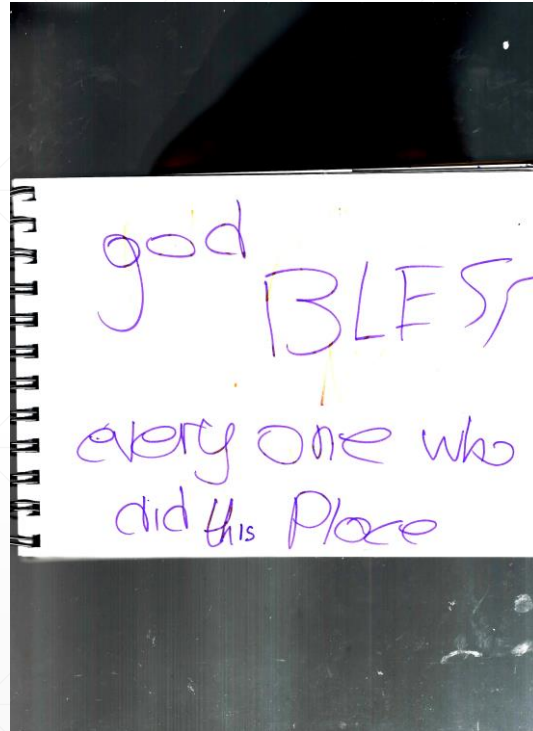 god
BLESS
every one who
did this Place